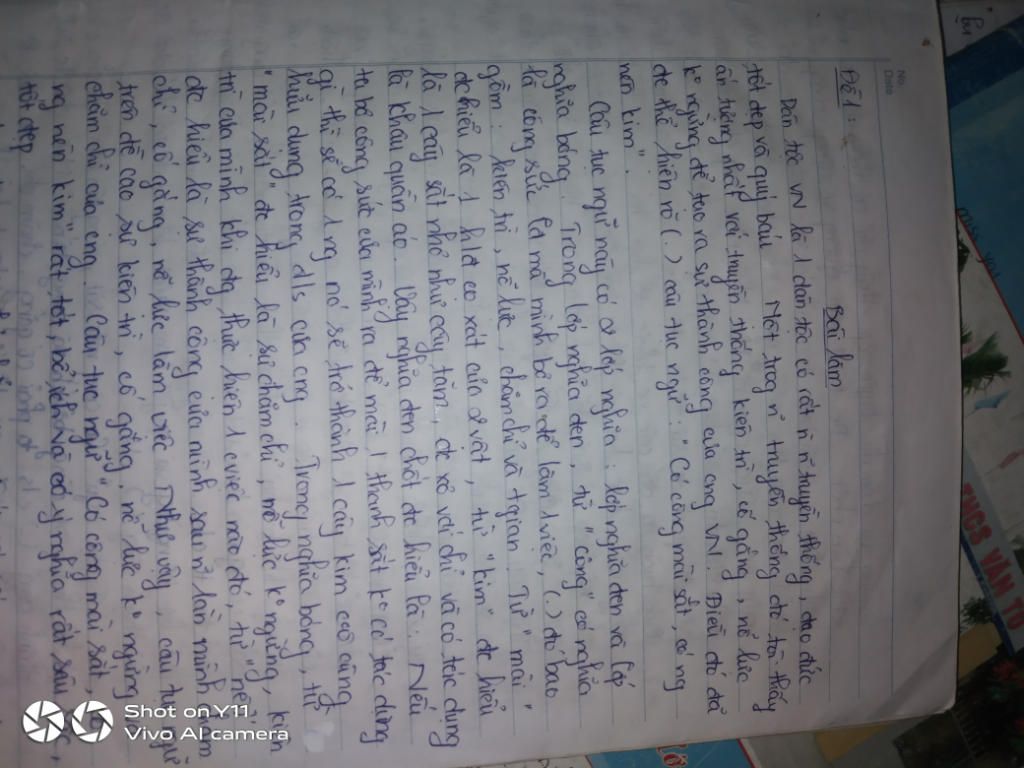 No.
Date
Đề 1:
Bài làm
Dân tộc VN là 1 dân tộc có rất n` n~ truyền thống, đạo đức
tốt đẹp và quý báu. Một trog n~ truyền thống đó tôi thấy
ấn tượng nhất với truyền thống kiên trì, cố gắng, nỗ lực
ko ngừng để tạo ra sự thành công của cng VN. Điều đó đã
đc thể hiện rõ (.) câu tục ngữ: "Có công mài sắt, có ng
nên kim".
Câu tục ngữ này có 2 lớp nghĩa: lớp nghĩa đen và lớp
nghĩa bóng. Trong lớp nghĩa đen, từ "công" có nghĩa
là công sức mà mình bỏ ra để làm 1 việc, (.) đó bao
gồm: kiên trì, nỗ lực, chăm chỉ và tgian. Từ "mài"
đc hiểu là 1 hđ cọ xát của 2 vật, từ "kim" đc hiểu
là 1 cây sắt nhỏ như cây tăm, đc xỏ với chỉ và có tác dụng
là khâu quần áo. Vậy nghĩa đen chốt đc hiểu là: Nếu
ta bỏ công sức của mình ra để mài 1 thanh sắt ko có tác dụng
gì thì sẽ có 1 ng nó sẽ trở thành 1 cây kim vô cùng
hữu dụng trong đ/s của cng. Trong nghĩa bóng, từ
"mài sắt" đc hiểu là sự chăm chỉ, nỗ lực ko ngừng, kiên
trì của mình khi đg thực hiện 1 cviệc nào đó, từ "nên
đc hiểu là sự thành công của mình sau n~ lần mình
chỉ, cố gắng, nỗ lực làm việc. Như vậy, câu tục ngữ
trên đề cao sự kiên trì, cố gắng, nỗ lực ko ngừng
chăm chỉ của cng. Câu tục ngữ "Có công mài sắt,
ng nên kim" rất tốt, bổ ích và có ý nghĩa rất sâu sắc,
tốt đẹp
THCS VĂN TỰ
Shot on Y11
Vivo AI camera